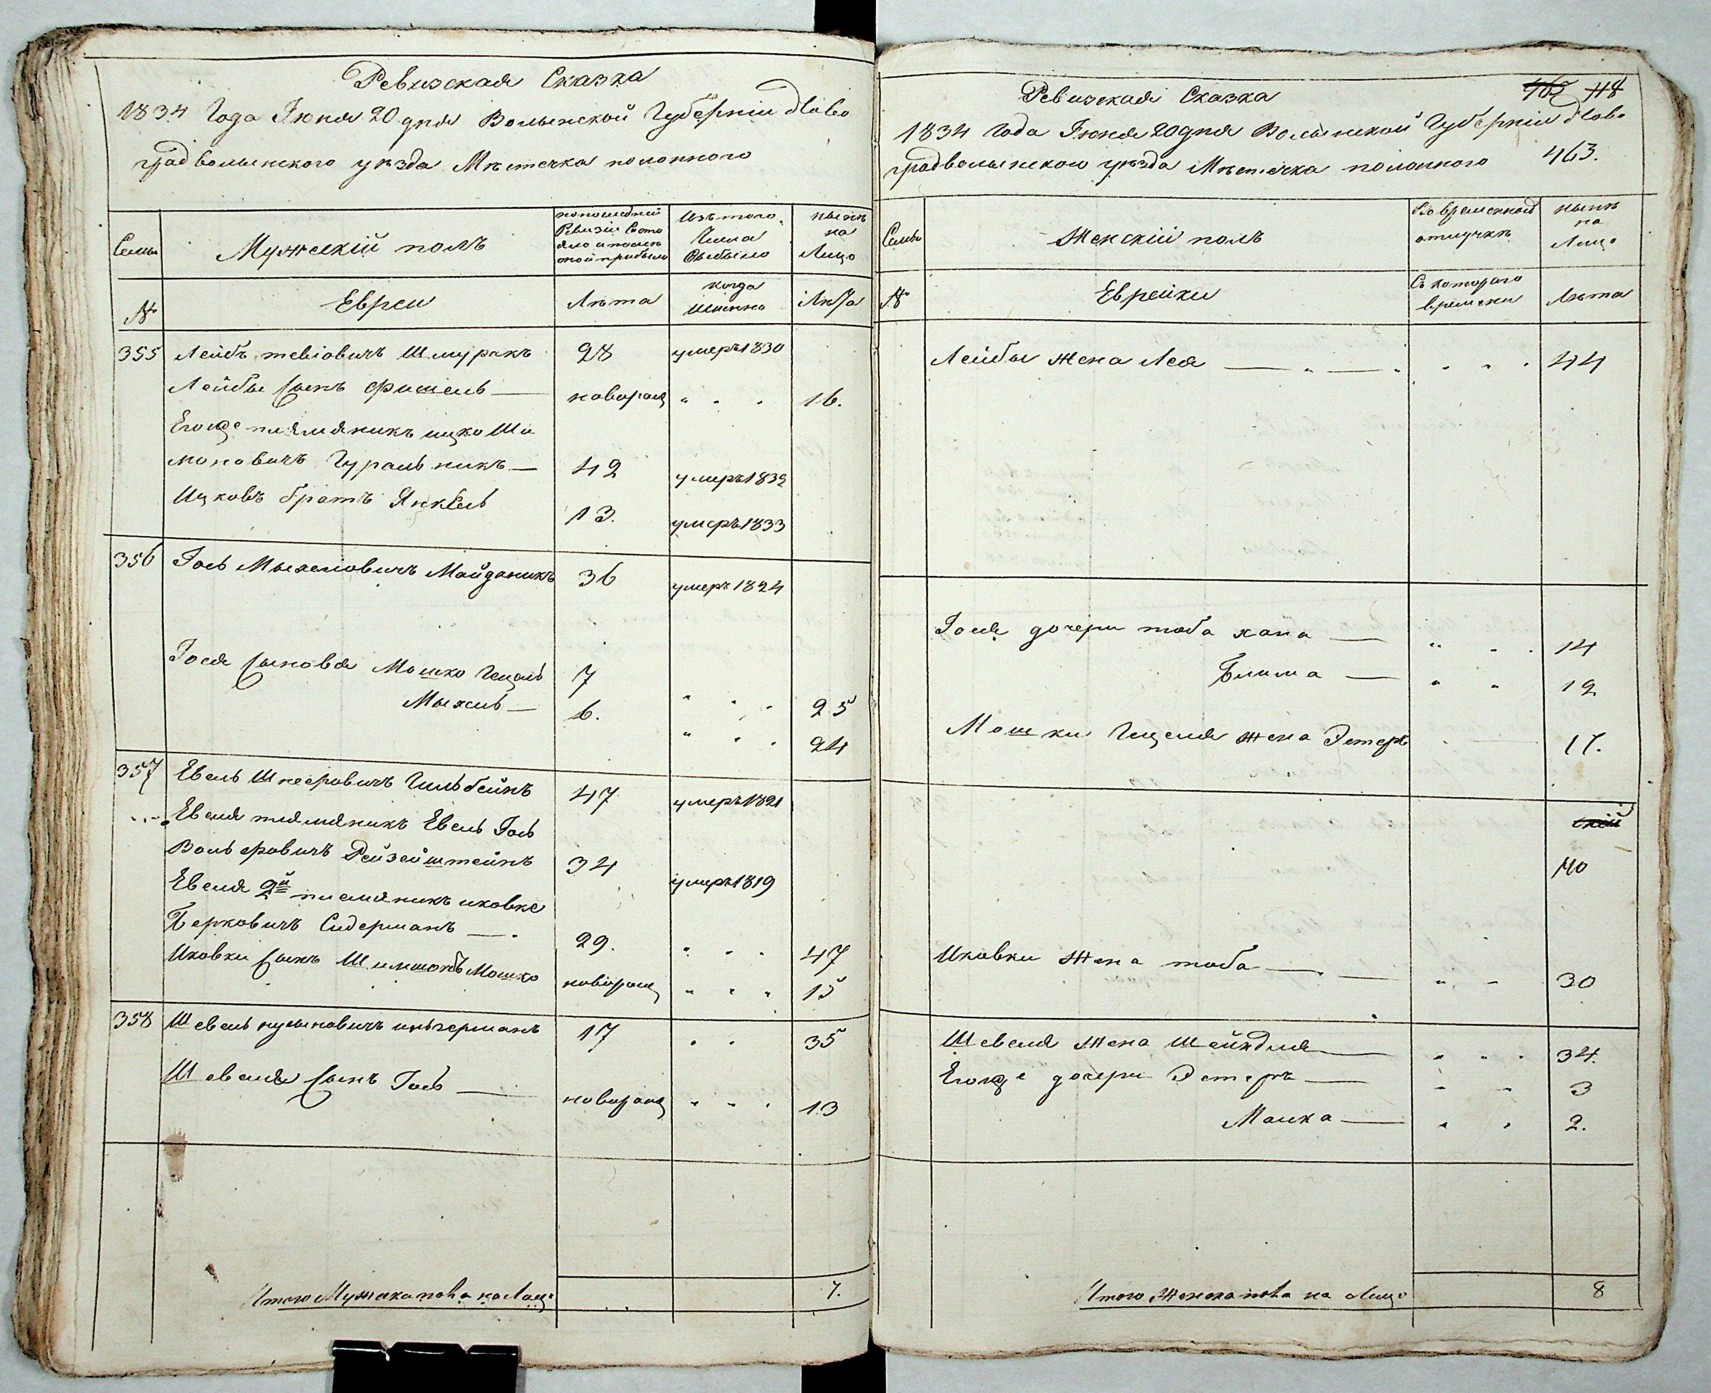 Ревизская Сказка
1834 Года Іюня 20 дня Волынской Губерніи Ново
градволынского уѣзда Мѣстечка полонного
Семьи
Мужескій полъ
по последней Ревизіи Состояло и после оной прибыло
Изъ того Числа Выбыло
ныне на Лицо
№
Евреи
Лѣта
когда имянно
Лѣта
355 Лейбъ тевіовичъ Шмуракъ 28 умеръ 1830
Лейбы Сынъ Фишель — новорож " . . 16.
Егоже племяникъ ицко Ши
моновичъ Гуральникъ — 42 умеръ 1832
Ицковъ братъ Янкель 13. умеръ 1833
356 Іось Мыхелiовичъ Майданикъ 36 умеръ 1824
Іося Сыновья Мошко Гецель 7 " . . 25
Мыхель — 6. " . . 24
357 Евель Шнееровичъ Гильбейнъ 47 умеръ 1821
Евеля племяникъ Евель Іось
Вольфовичъ Рейзейштейнъ 34 умеръ 1819
Евеля 2й племяникъ иковке
Берковичъ Сидерманъ — . 29. " . . 47
Иковки Сынъ Шимшонъ Мошко новорож " " " 15
358 Шевель нусыновичъ ингерманъ 17 . . 35
Шевеля Сынъ Іось — новорож " " . 13
Итого Мужска пола на Лицо . . 7.
Ревизская Сказка 462 118
1834 Года Іюня 20 дня Волынской Губерніи Ново
градволынского уѣзда Мѣстечка полонного 463.
Семьи
Женскій полъ
Во временной отлучкѣ
нынѣ на Лицо
№
Еврейки
Съ которого времени
Лѣта
Лейбы жена Лея — " — " . . . 44
Іося дочери тоба хана — " . . 14
Блима — " " 12
Мошки Гецеля жена Эстеръ . — 17.
40
Иковки жена тоба — . — " — 30
Шевеля жена Шейндля — " " . 34
Егоже дочери Эстеръ — " " 3
Малка — " . 2.
Итого Женска пола на Лицо 8